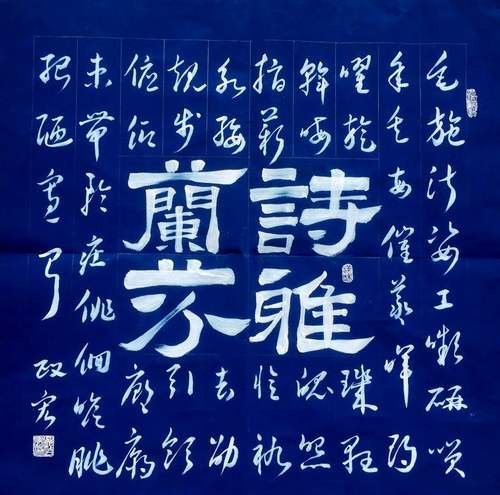 詩雅
蘭芬
毛施淑姿工顰研笑
年矢每催羲暉朗
曜旋璣懸
斡晦魄照
指薪修祜
永綏吉劭
矩步引領
俯仰廊廟
束帶矜莊徘徊瞻眺
孤陋寡聞